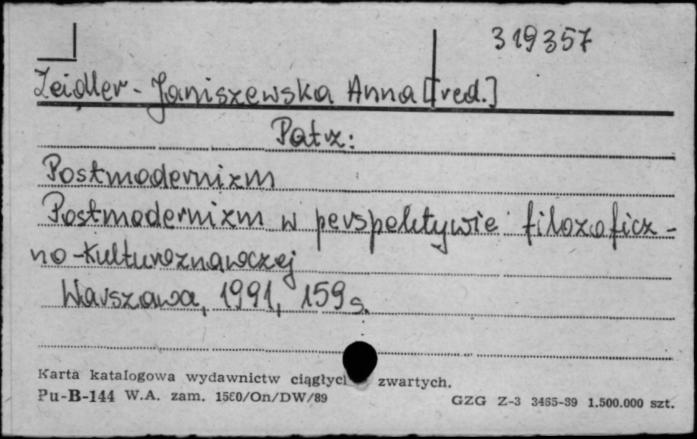 319357
Zeidler-Janiszewska Anna [red.]
Patrz:
Postmodernizm
Postmodernizm w perspektywie filozoficz-
no-kulturoznawczej
Warszawa, 1991, 159 s.
Karta katalogowa wydawnictw ciągłyc zwartych.
Pu-B-144 W.A. zam. 1580/On/DW/89 GZG Z-3 3465-89 1.500.000 szt.